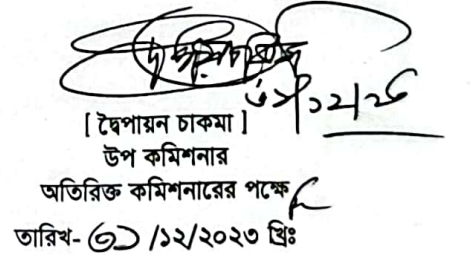 [ দ্বৈপায়ন চাকমা ]
উপ কমিশনার
অতিরিক্ত কমিশনারের পক্ষে
তারিখ- ৩১ /১২/২০২৩ খ্রিঃ